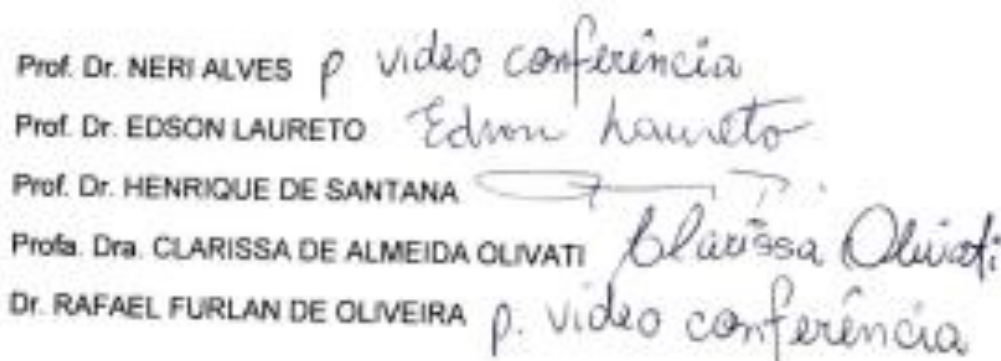 Prof. Dr. NERI ALVES p video conferência
Prof. Dr. EDSON LAURETO Edson Laureto
Prof. Dr. HENRIQUE DE SANTANA
Profa. Dra. CLARISSA DE ALMEIDA OLIVATI Clarissa Olivati
Dr. RAFAEL FURLAN DE OLIVEIRA p. video conferência